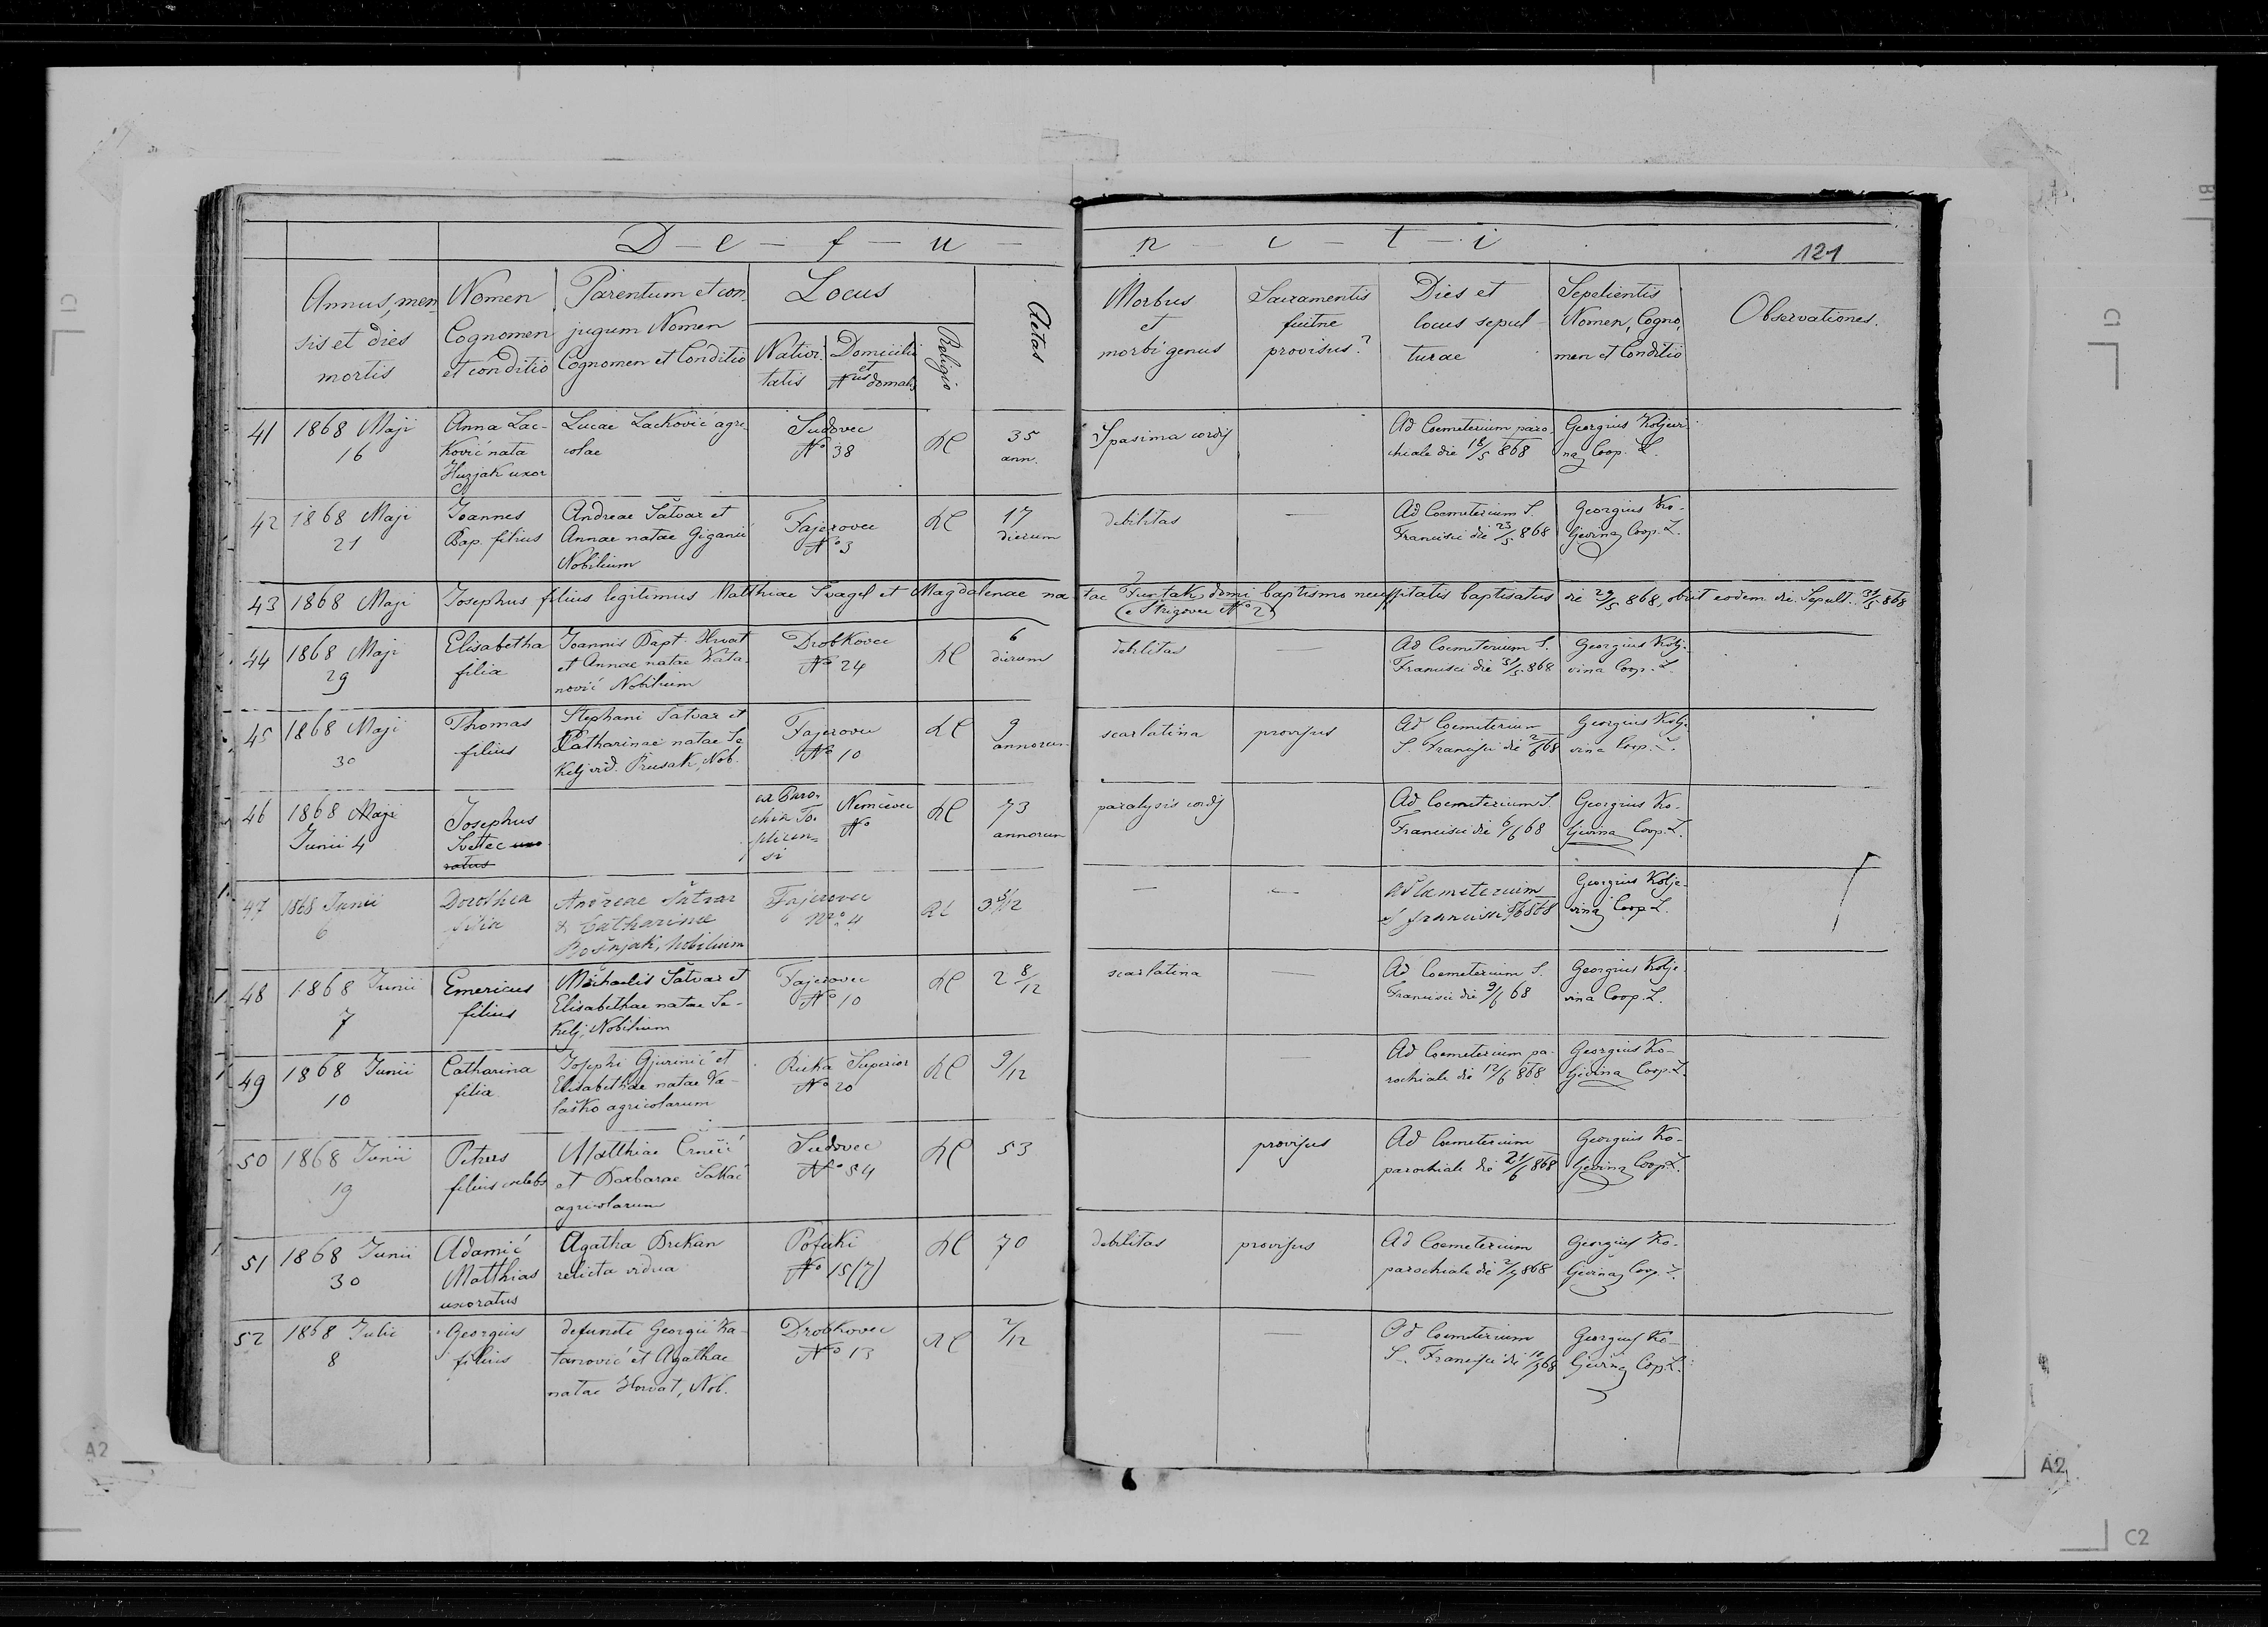 D - e - f - u - n - c - t - i
121
Annus, men-
sis et dies
mortis
Nomen
Cognomen
et conditio
Parentum et con-
jugum Nomen
Cognomen et Conditio
Locus
Nativi-
tatis
Domicilii
et
Nrus domalis
Religio
Aetas
Morbus
et
morbi genus
Sacramentis
fuitne
provisus?
Dies et
locus sepul-
turae
Sepelientis
Nomen, Cogno-
men et Conditio
Observationes.
41
1868 Maji
16
Anna Lac-
ković nata
Huzjak uxor
Lucae Lacković agri-
colae
Sudovec
No 38
RC
35
ann.
Spasima cordis
Ad Coemeterium paro-
chiale die 18/5 868
Georgius Koljevi-
na Coop. L.
42
1868 Maji
21
Joannes
Bap. filius
Andreae Šatvar et
Annae natae Giganić
Nobilium
Fajerovec
No 3
RC
17
dierum
debilitas
—
Ad Coemeterium S.
Francisci die 23/5 868
Georgius Ko-
ljevina Coop. L.
43
1868 Maji
Josephus filius legitimus Matthiae Svagel et Magdalenae na tae Furtak domi baptismo necessitatis baptisatus die 29/5 868, obiit eodem die. Sepult. 31/5 868
(e Strigovec No 2)
44
1868 Maji
29
Elisabetha
filia
Joannis Bapt. Hrvat
et Annae natae Kata-
nović Nobilium
Drobkovec
No 24
RC
6
dierum
debilitas
—
Ad Coemeterium S.
Francisci die 31/5 868
Georgius Kolje-
vina Coop. L.
45
1868 Maji
30
Thomas
filius
Stephani Šatvar et
Catharinae natae Se-
kelj vid. Prusak, Nob.
Fajerovec
No 10
RC
9
annorum
scarlatina
provisus
Ad Coemeterium
S. Francisci die 2/6 68
Georgius Kolje-
vina Coop. L.
46
1868 Maji
Junii 4
Josephus
Svetec uxo-
ratus
ex Paro-
chia To-
plicen-
si
Nemčevec
No
RC
73
annorum
paralysis cordis
Ad Coemeterium S.
Francisci die 6/6 68
Georgius Ko-
ljevina Coop. L.
47
1868 Junii
6
Dorothea
filia
Andreae Šatvar
& Catharinae
Bošnjak, Nobilium
Fajerovec
Nro 4
RC
3 5/12
—
—
Ad Cemeterium
S. Francisci 8/6 868
Georgius Kolje-
vina Coop L.
48
1868 Junii
7
Emericus
filius
Michaelis Šatvar et
Elisabethae natae Se-
kelj, Nobilium
Fajerovec
No 10
RC
2 8/12
scarlatina
—
Ad Coemeterium S.
Francisci die 9/6 68
Georgius Kolje-
vina Coop. L.
49
1868 Junii
10
Catharina
filia
Josephi Gjurinić et
Elisabethae natae Va-
laško agricolarum
Rieka Superior
No 20
RC
9/12
—
Ad Coemeterium pa-
rochiale die 12/6 868
Georgius Ko-
ljevina Coop. L.
50
1868 Junii
19
Petrus
filius coelebs
Matthiae Črnčić
et Barbarae Sakač
agricolarum
Sudovec
No 54
RC
53
provisus
Ad Coemeterium
parochiale die 21/6 868
Georgius Ko-
ljevina Coop L.
51
1868 Junii
30
Adamić
Matthias
uxoratus
Agatha Brkan
relicta vidua
Pofuki
No 15(7)
RC
70
debilitas
provisus
Ad Coemeterium
parochiale die 2/7 868
Georgius Ko-
ljevina Coop. L.
52
1868 Julii
8
Georgius
filius
defuncti Georgii Ka-
tanović et Agathae
natae Horvat, Nob.
Drobkovec
No 13
RC
7/12
—
Ad Coemeterium
S. Francisci die 10/7 68
Georgius Ko-
ljevina Cop. L.
C1
C1
B1
A2
A2
C2